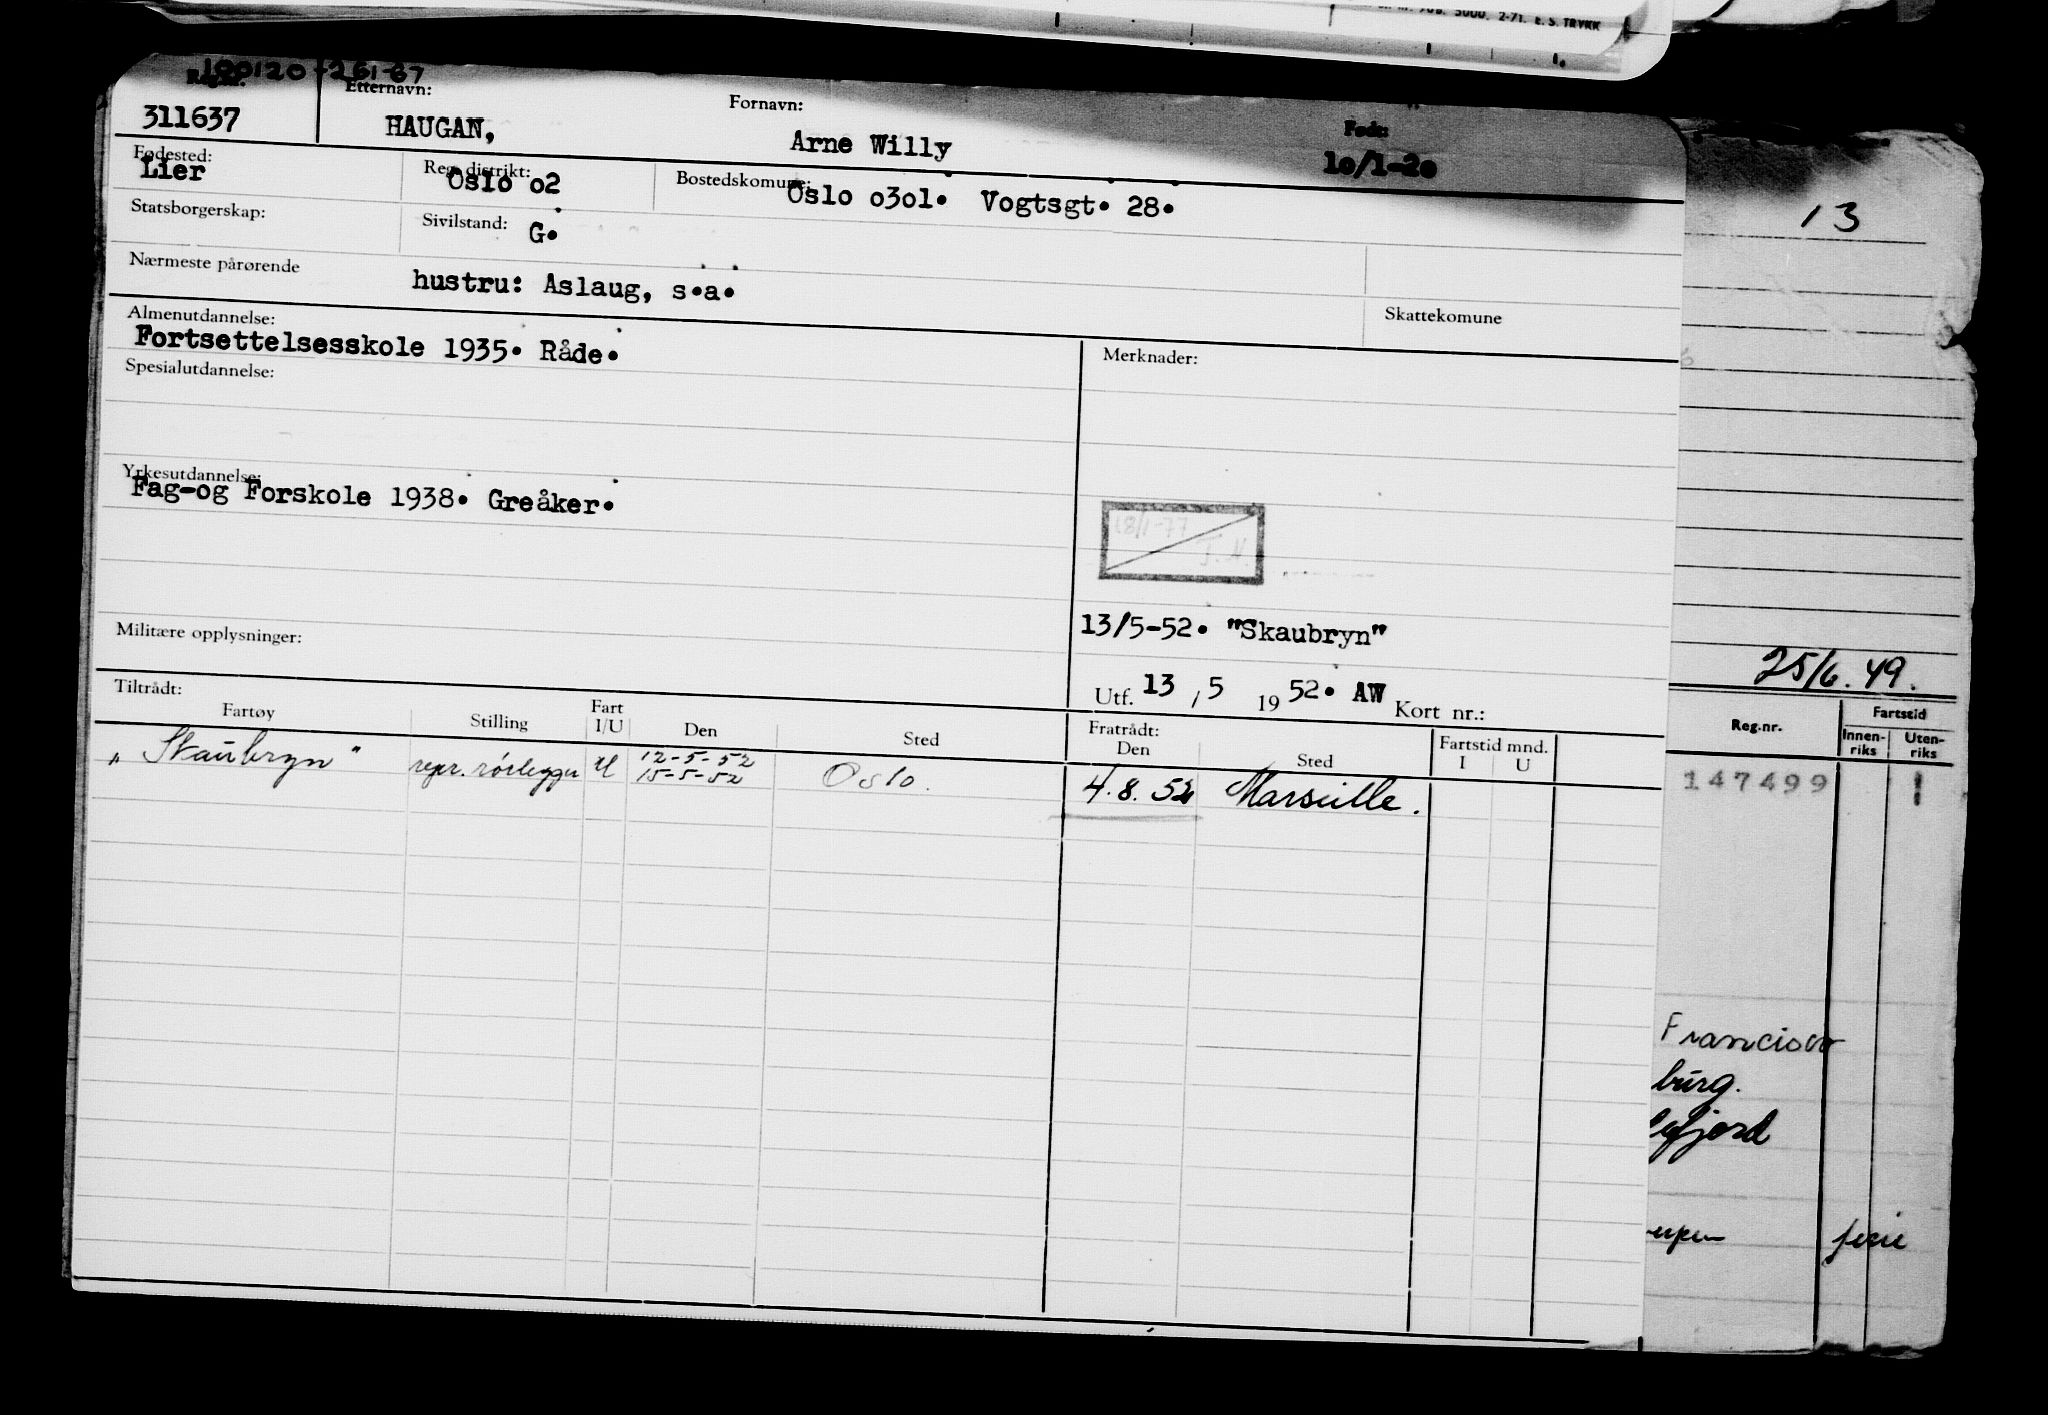 5000. 2-71. E. S. TRYKK
100120-261-67
Reg.nr.
Etternavn:
Fornavn:
Født:
311637
HAUGAN,
Arne Willy
1o/1-2o
Fødested:
Reg. distrikt:
Bostedskomune:
Lier
Oslo o2
Oslo o3o1. Vogtsgt. 28.
Statsborgerskap:
Sivilstand:
G.
Nærmeste pårørende
hustru: Aslaug, s.a.
Skattekomune
Almenutdannelse:
Fortsettelsesskole 1935. Råde.
Merknader:
Spesialutdannelse:
Yrkesutdannelse:
Fag-og Forskole 1938. Greåker.
18/1-77
J.N.
Militære opplysninger:
13/5-52. "Skaubryn"
Utf. 13 / 5 19 52. AW Kort nr.:
Tiltrådt:
Fratrådt:
Fartøy
Stilling
Fart I/U
Den
Sted
Den
Sted
Fartstid mnd.
I U
"Skaubryn"
repr. rørlegger
U
12-5-52
15-5-52
Oslo.
4.8.52
Marseille.
13
25/6.49.
Reg.nr.
Fartstid
Innen-riks
Uten-riks
147499
Francisco
burg.
fjord
ferie